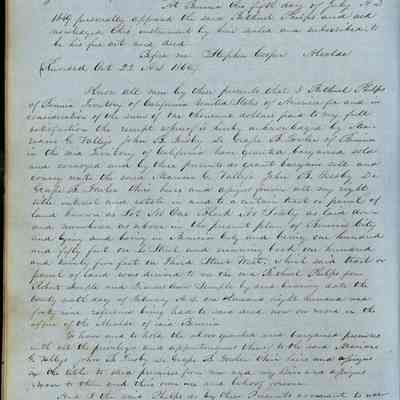 At Benicia this fifth day of July A.D.
1849 personally appeared the said Bethuel Phelps and ack
nowledged this instrument by him sealed and subscribed to
be his free act and deed
Before me Stephen Cooper Alcalde
Recorded Oct 22 A.D. 1849.
Know all men by these presents that I Bethuel Phelps
of Benicia Territory of California United States of America for and in
consideration of the sum of one thousand dollars paid to my full
satisfaction the receipt whereof is hereby acknowledged by Mar
iano G. Vallejo John B. Frisby
in the said Territory of California have granted bargained sold
and conveyed and by these presents do grant bargain sell and
convey unto the said Mariano G. Vallejo John B. Frisby
their heirs and assigns forever all my right
title interest and estate in and to a certain tract or parcel of
land known as Lot No One Block No as laid down
and numbered as above in the present plan of Benicia City
and lying and being in Benicia City and being one hundred
and fifty feet on Street and running back one hundred
and twenty five feet on Third Street West, which said tract or
parcel of land was deeded to me the said Bethuel Phelps from
Robert Semple and Semple by deed bearing date the
twenty ninth day of February A.D. one thousand eight hundred and
forty nine reference being had to said deed now on record in the
office of the Alcalde of said Benicia
To have and to hold the above granted and bargained premises
with all the privileges and appurtenances thereof to the said Mariano
G. Vallejo John B. Frisby their heirs and assigns
the title to said premises from me and my heirs and assigns
to them and their own use and behoof forever.
And I the said Phelps do by these Presents covenant to war